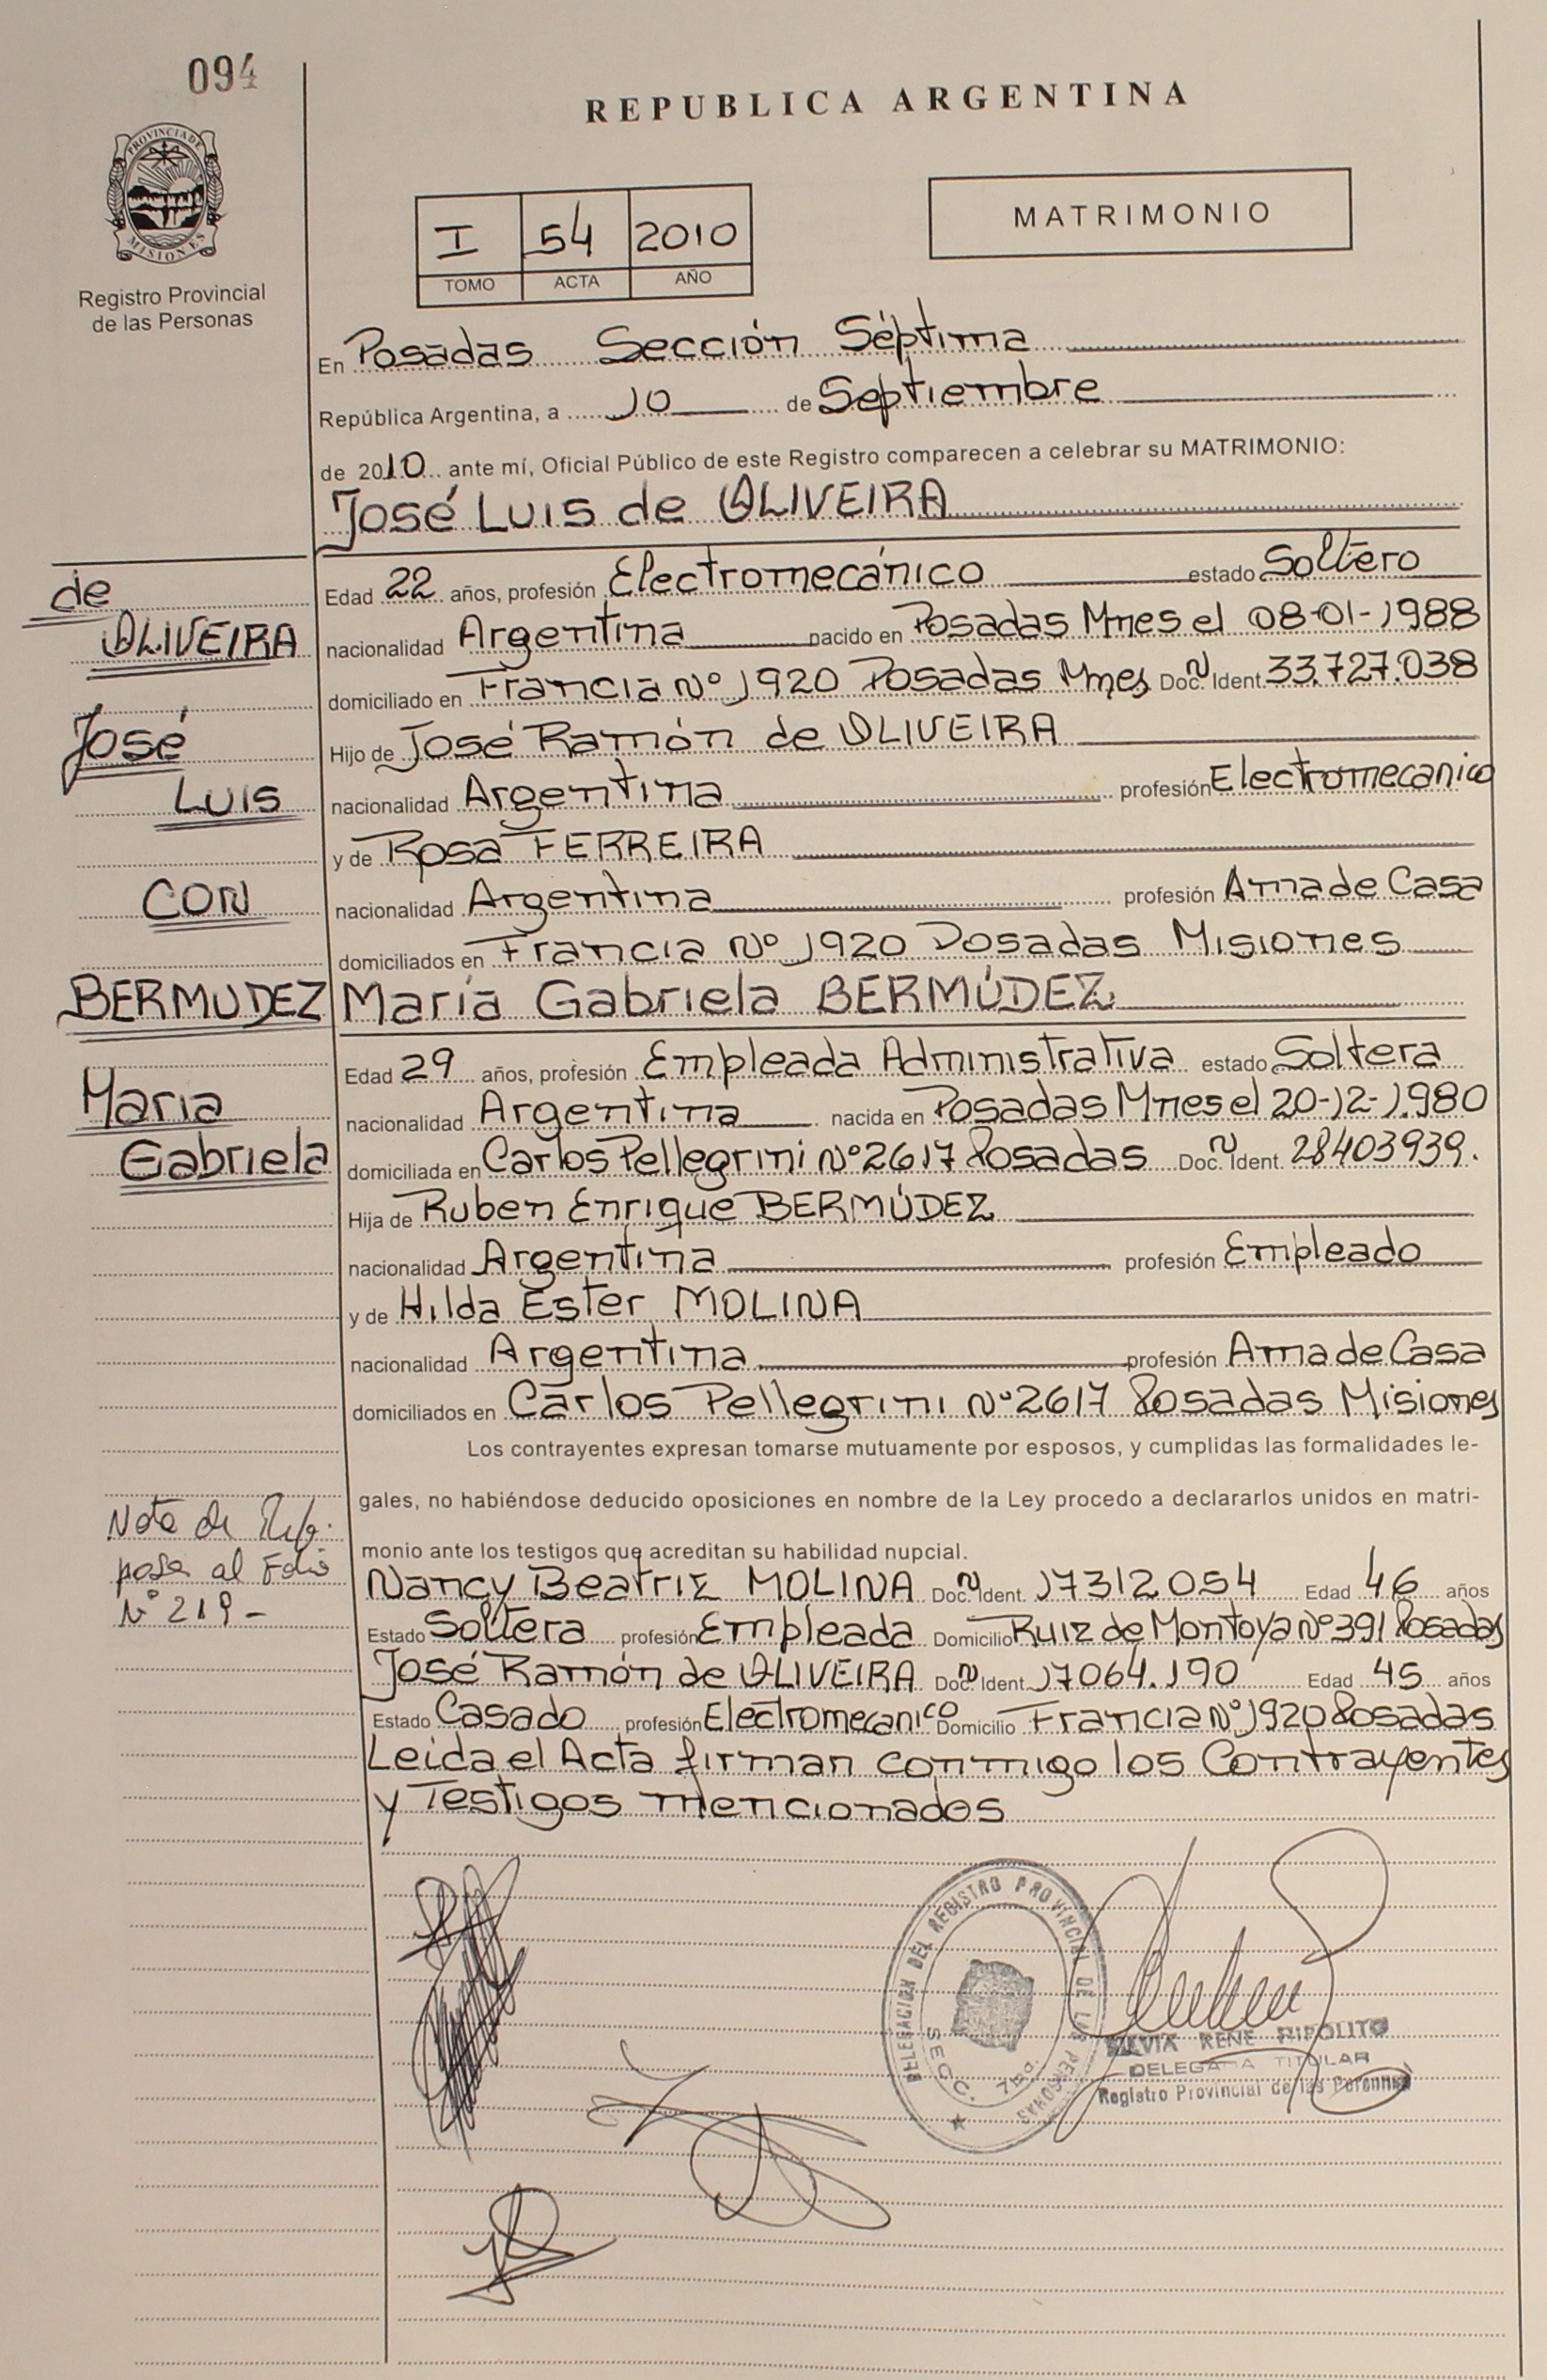 094
REPUBLICA ARGENTINA
PROVINCIA DE
MISIONES
Registro Provincial
de las Personas
I 54 2010
TOMO ACTA AÑO
MATRIMONIO
En Posadas Sección Séptima
República Argentina, a 10 de Septiembre
de 2010 ante mí, Oficial Público de este Registro comparecen a celebrar su MATRIMONIO:
José Luis de OLIVEIRA
de
OLIVEIRA
José
Luis
CON
BERMUDEZ
Maria
Gabriela
Edad 22 años, profesión Electromecánico estado Soltero
nacionalidad Argentina nacido en Posadas Mnes el 08-01-1988
domiciliado en Francia Nº 1920 Posadas Mnes Doc. N Ident. 33.727.038
Hijo de José Ramón de OLIVEIRA
nacionalidad Argentina profesión Electromecanico
y de Rosa FERREIRA
nacionalidad Argentina profesión Ama de Casa
domiciliados en Francia Nº 1920 Posadas Misiones
María Gabriela BERMÚDEZ
Edad 29 años, profesión Empleada Administrativa estado Soltera
nacionalidad Argentina nacida en Posadas Mnes el 20-12-1980
domiciliada en Carlos Pellegrini Nº 2617 Posadas Doc. N Ident. 28403939.
Hija de Ruben Enrique BERMÚDEZ
nacionalidad Argentina profesión Empleado
y de Hilda Ester MOLINA
nacionalidad Argentina profesión Ama de Casa
domiciliados en Carlos Pellegrini Nº 2617 Posadas Misiones
Los contrayentes expresan tomarse mutuamente por esposos, y cumplidas las formalidades le-
gales, no habiéndose deducido oposiciones en nombre de la Ley procedo a declararlos unidos en matri-
monio ante los testigos que acreditan su habilidad nupcial.
Nota de Ref.
pasa al Folio
Nº 219-
Nancy Beatriz MOLINA Doc. N Ident. 17312054 Edad 46 años
Estado Soltera profesión Empleada Domicilio Ruiz de Montoya Nº 391 Posadas
José Ramón de OLIVEIRA Doc. N Ident. 17064.190 Edad 45 años
Estado Casado profesión Electromecanico Domicilio Francia Nº 1920 Posadas
Leida el Acta firman conmigo los Contrayentes
y Testigos mencionados
DELEGACION DEL REGISTRO PROVINCIAL DE LAS PERSONAS
SECC. 7MA.
SILVIA RENE HIPOLITO
DELEGADA TITULAR
Registro Provincial de las Personas